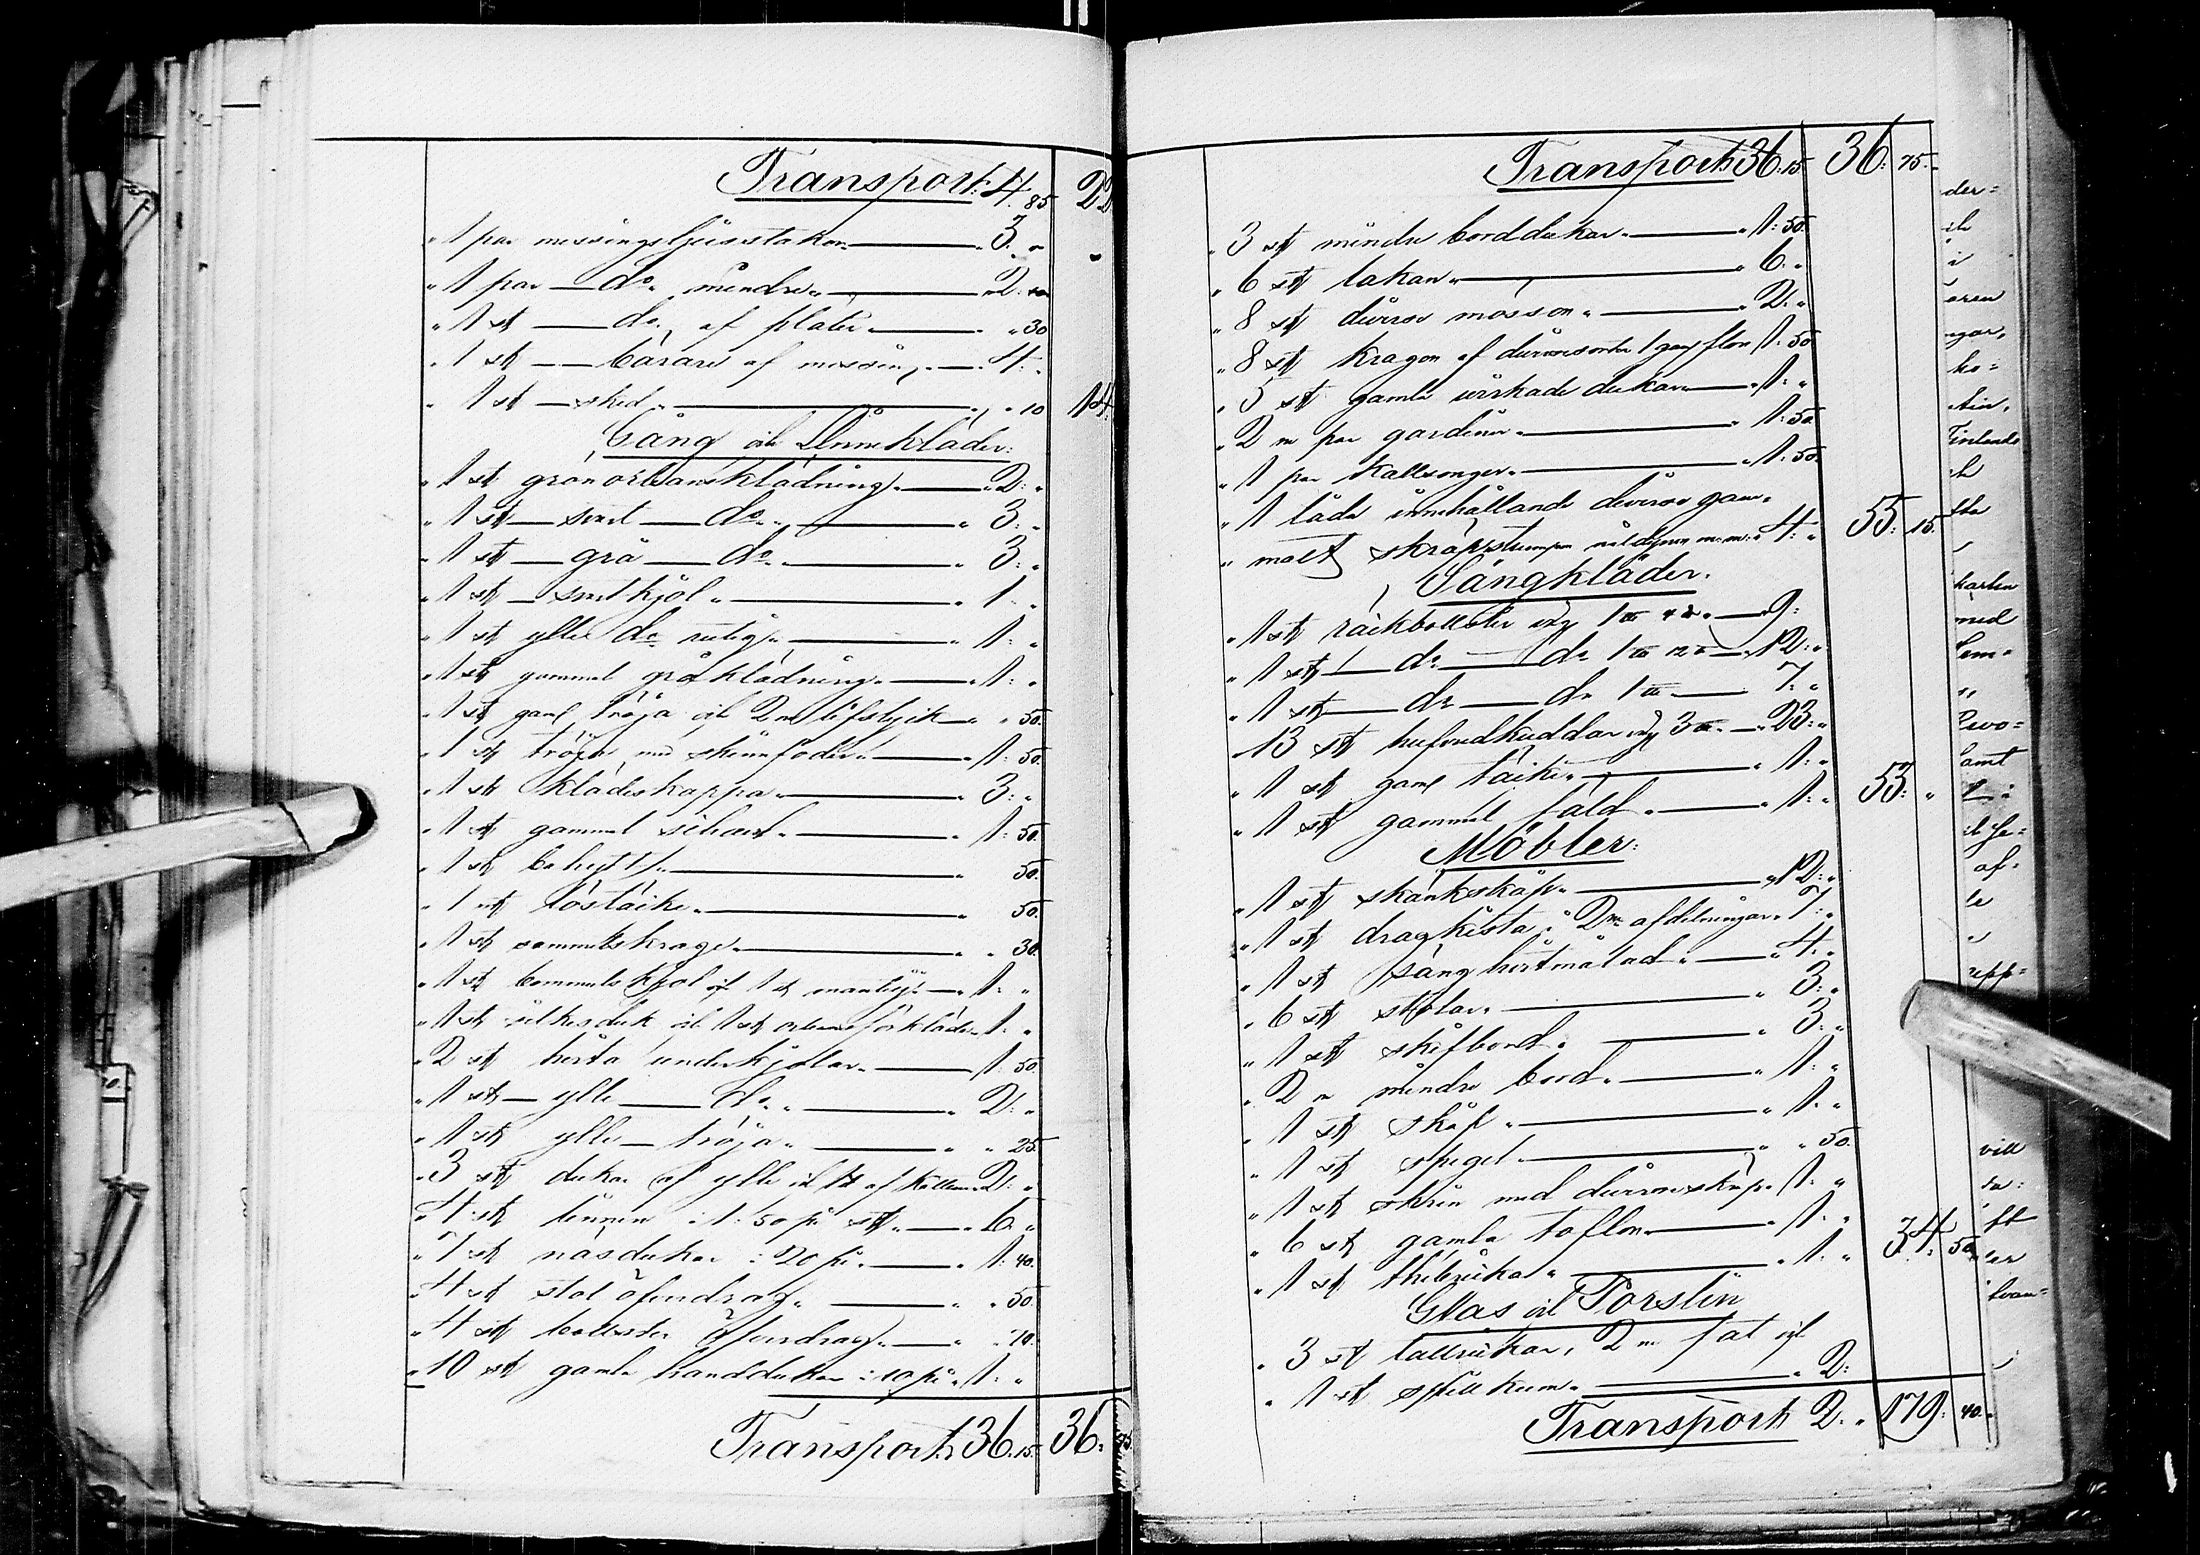 Transport: 4. 85 22
" 1 par messingsljusstakar " 3. "
" 1 par — do mindre " 2: "
" 1 st — do af pläter " " 30
" 1 st — bärare af messing " 4: "
" 1 st — sked " " 10 14
Gång och Linnekläder:
" 1 st grön orleansklädning " 2: "
" 1 st — svart — do " 3: "
" 1 st — grå — do " 3: "
" 1 st — svart kjol " 1: "
" 1 st ylle do rutig " 1: "
" 1 st gammal grå klädning " 1: "
" 1 st gaml tröja och 2 ne lifstyck " " 50.
" 1 st tröja med skinnfoder " 1: 50.
" 1 st klädeskappa " 3: "
" 1 st gammal schael " 1: 50.
" 1 st bahytt " 50.
" 1 st löstäcke " 50.
" 1 st sammetskrage " " 30.
" 1 st bommulls kjol och 1 st mantilj " 1: "
" 1 st silkesduk och 1 st förkläde 1: "
" 2 st hvita underkjolar " 1: 50.
" 1 st — ylle — do " 2: "
" 1 st ylle — tröja " " 25.
" 3 st dukar af ylle och 1 st af kattun 2: "
" 4 st linnen à 1: 50 pi st " 6. "
" 7 st näsdukar à 20 pi " 1: 40.
" 4 st stol öfverdrag " " 50.
" 4 st bollster öfverdrag " " 70.
" 10 st gamla handdukar à 10 pi " 1: "
Transport: 36. 15. 36: 75.
Transport: 36. 15 36: 75.
" 3 st mindre borddukar " 1: 50.
" 6 st lakan " 6. "
" 8 st diverse mössor " 2: "
" 8 st kragar af diverse sorter 1: 50
" 5 st gamla virkade dukar " 1: "
" 2 ne par gardiner " 1: 50.
" 1 par kallsonger " 1: 50.
" 1 låda innehållande diverse gam=
" malt skräp strumpor nåldynor m. m. 4: " 55: 15.
Sängkläder.
" 1 st räckbollster vägr 1 9:
" 1 st — do — do 1 12: "
" 1 st — do — do 1 7: "
" 13 st hufvudkuddar vägr 3 23: "
" 1 st gaml täcke " 1: "
" 1 st gammal fäld " 1: " 53: "
Möbler:
" 1 st skänkskåp " 12: "
" 1 st dragkista i 2 ne afdelningar 7: "
" 1 st säng hvitmålad " 4. "
" 6 st stolar " 3: "
" 1 st skifbord " 3: "
" 2 ne mindre bord " 1: "
" 1 st skåp " 1: "
" 1 st spegel " " 50.
" 1 st skrin med diverse skräp 1: "
" 6 st gamla taflor " 1: "
" 1 st thebricka " 1: " 34: 50.
Glas och Porslin
" 3 st tallrickar, 2 ne fat och
" 1 st spillkum " 2:
Transport 2. " 179: 40.
der=
ngar,
ko=
Finlands
karlen
med
samt
af=
upp=
vill